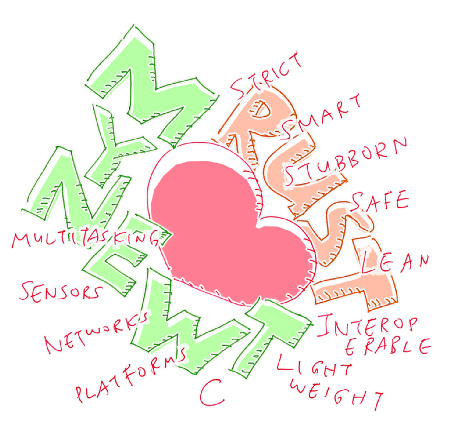 MYNEWT
RUST
STRICT
SMART
STUBBORN
SAFE
LEAN
INTEROP
ERABLE
LIGHT
WEIGHT
C
PLATFORMS
NETWORKS
SENSORS
MULTITASKING